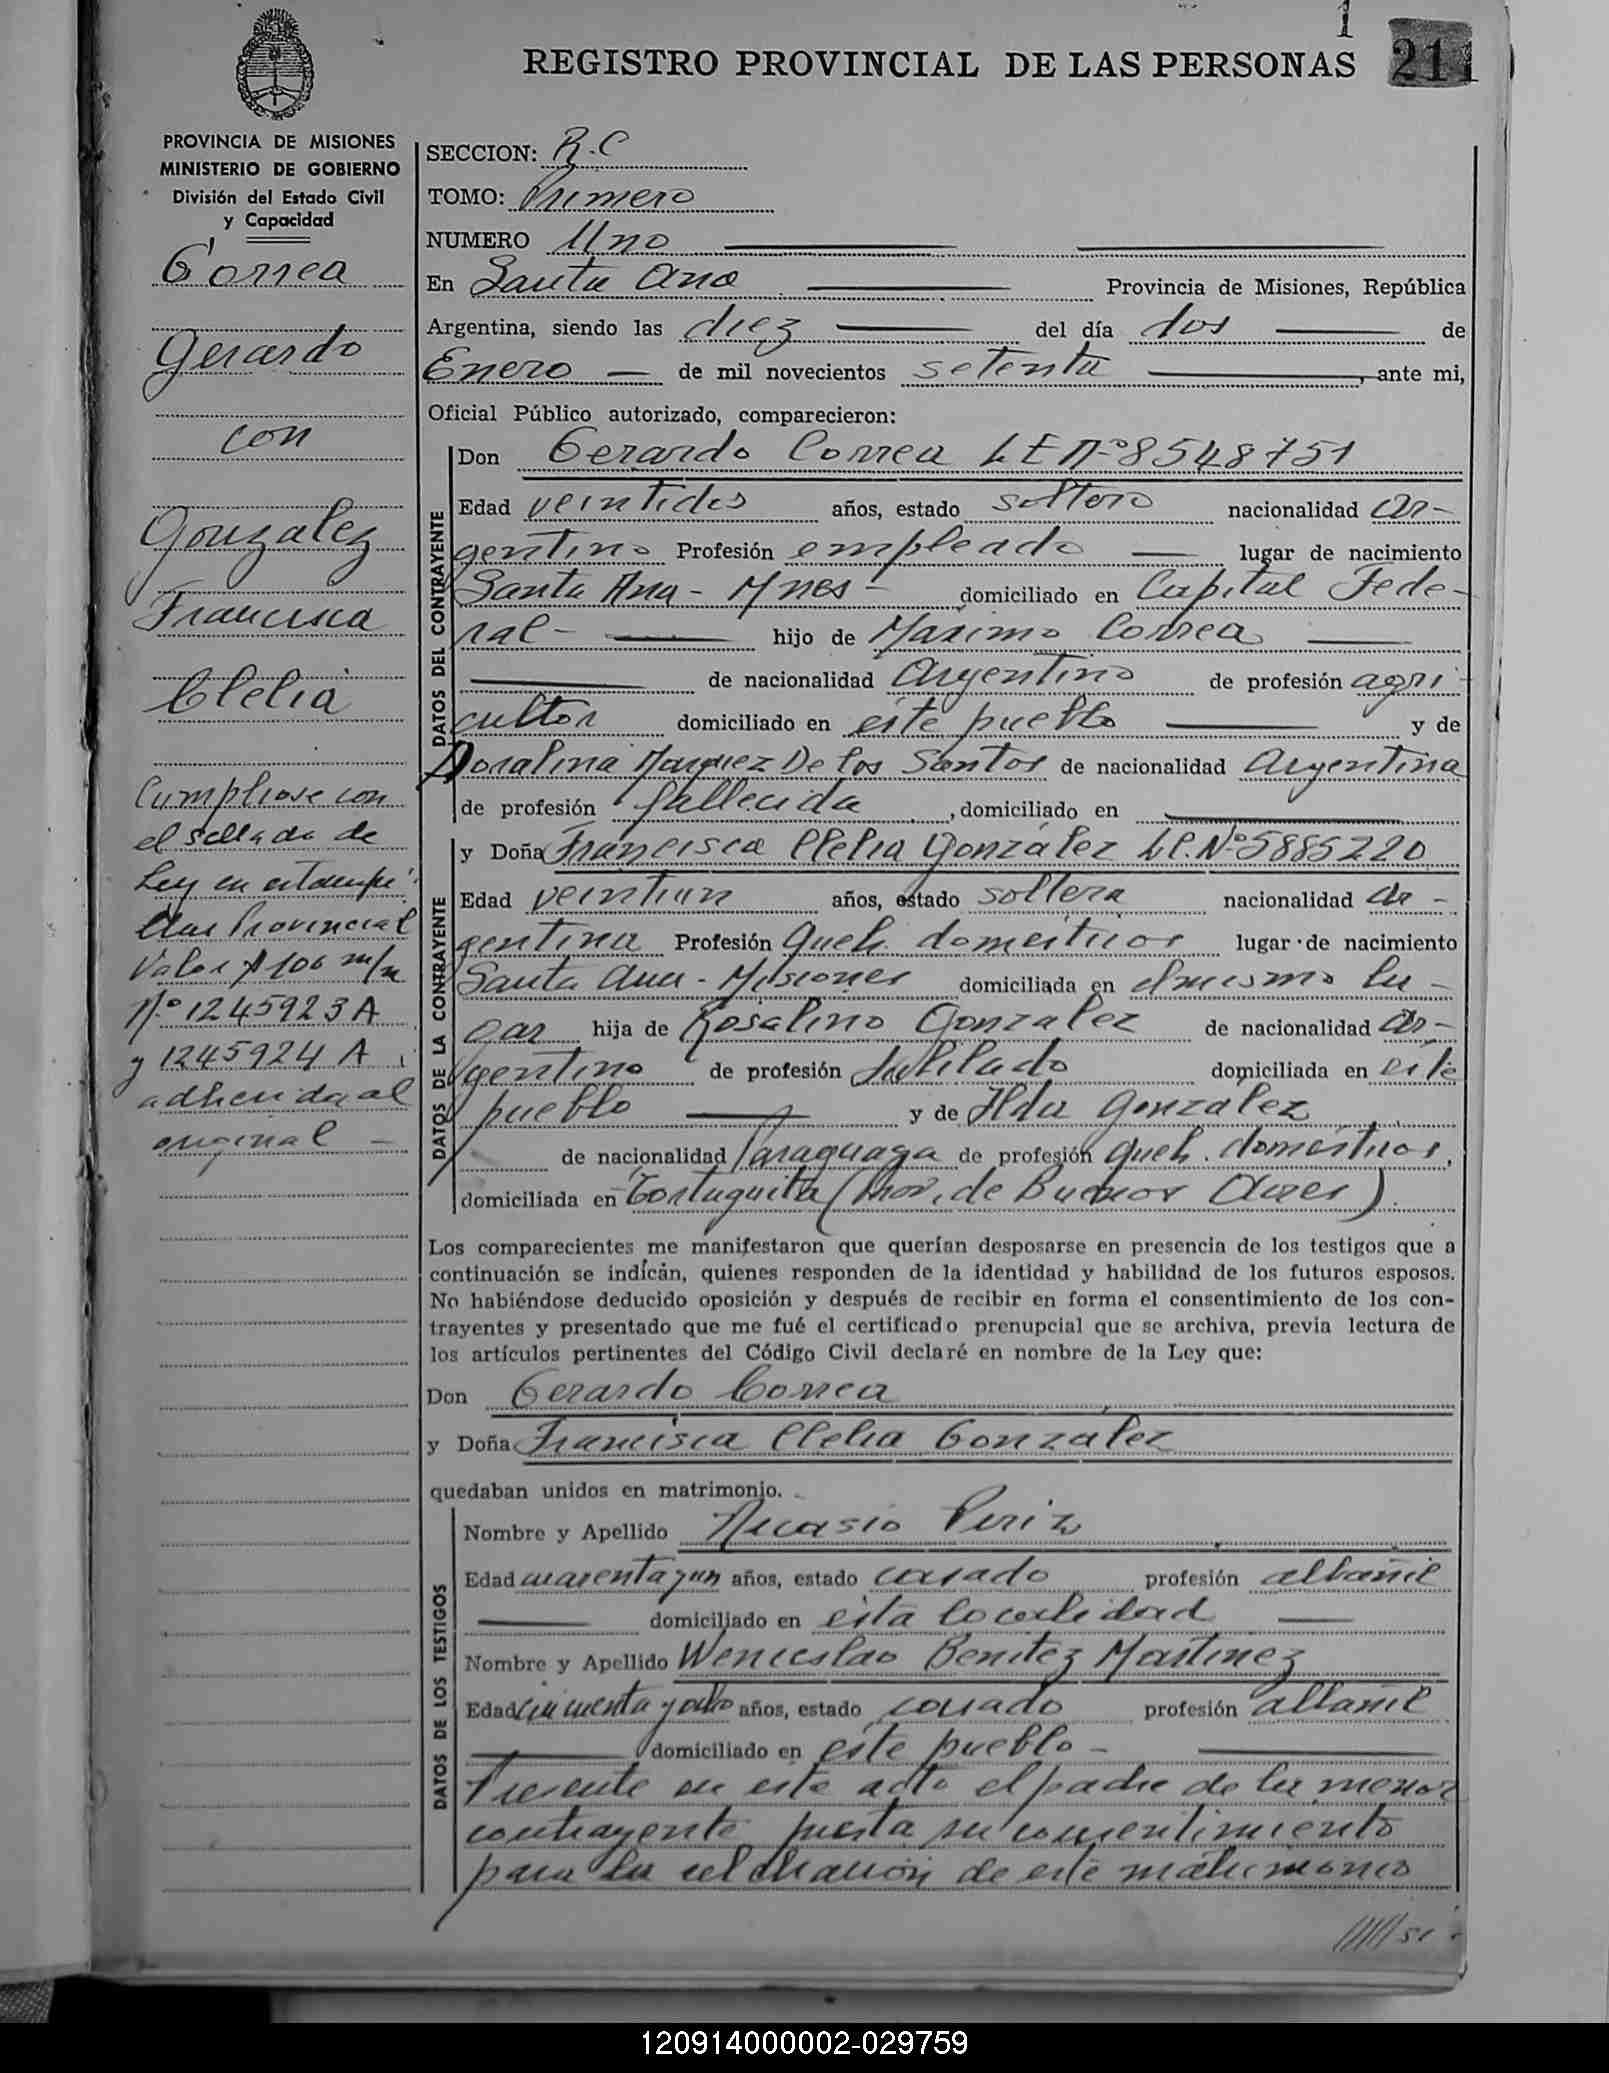 1
REGISTRO PROVINCIAL DE LAS PERSONAS
211
PROVINCIA DE MISIONES
MINISTERIO DE GOBIERNO
División del Estado Civil
y Capacidad
Correa
Gerardo
con
Gonzalez
Francisca
Clelia
Cumpliose con
el sellado de
Ley en estampi
llas Provincial
Valor $ 100 m/n
N.º 1245923 A
y 1245924 A
adherida al
original —
SECCION: R.C
TOMO: Primero
NUMERO Uno
En Santa Ana Provincia de Misiones, República
Argentina, siendo las diez del día dos de
Enero — de mil novecientos setenta, ante mi,
Oficial Público autorizado, comparecieron:
DATOS DEL CONTRAYENTE
Don Gerardo Correa L E Nº 8548751
Edad veintidos años, estado soltero nacionalidad Ar-
gentino Profesión empleado — lugar de nacimiento
Santa Ana - Mnes - domiciliado en Capital Fede-
ral - hijo de Maximo Correa
de nacionalidad Argentino de profesión agri-
cultor domiciliado en este pueblo y de
Doralina Marquez De los Santos de nacionalidad Argentina
de profesión fallecida, domiciliado en
DATOS DE LA CONTRAYENTE
y Doña Francisca Clelia González LC. Nº 5885220
Edad veintiun años, estado soltera nacionalidad Ar-
gentina Profesión Queh. domesticos lugar de nacimiento
Santa Ana - Misiones domiciliada en el mismo lu-
gar hija de Rosalino Gonzalez de nacionalidad Ar-
gentino de profesión Jubilado domiciliada en este
pueblo y de Ilda Gonzalez
de nacionalidad Paraguaya de profesión queh. domésticos,
domiciliada en Tortuguita (Prov. de Buenos Aires).
Los comparecientes me manifestaron que querían desposarse en presencia de los testigos que a
continuación se indicán, quienes responden de la identidad y habilidad de los futuros esposos.
No habiéndose deducido oposición y después de recibir en forma el consentimiento de los con-
trayentes y presentado que me fué el certificado prenupcial que se archiva, previa lectura de
los artículos pertinentes del Código Civil declaré en nombre de la Ley que:
Don Gerardo Correa
y Doña Francisca Clelia Gonzalez
quedaban unidos en matrimonio.
DATOS DE LOS TESTIGOS
Nombre y Apellido Nicasio Periz
Edad cuarenta y un años, estado casado profesión albañil
domiciliado en esta localidad
Nombre y Apellido Wenceslao Benitez Martinez
Edad cincuenta y ocho años, estado casado profesión albañil
domiciliado en este pueblo -
Presente en este acto el padre de la menor
contrayente presta su consentimiento
para la celebración de este matrimonio
120914000002-029759